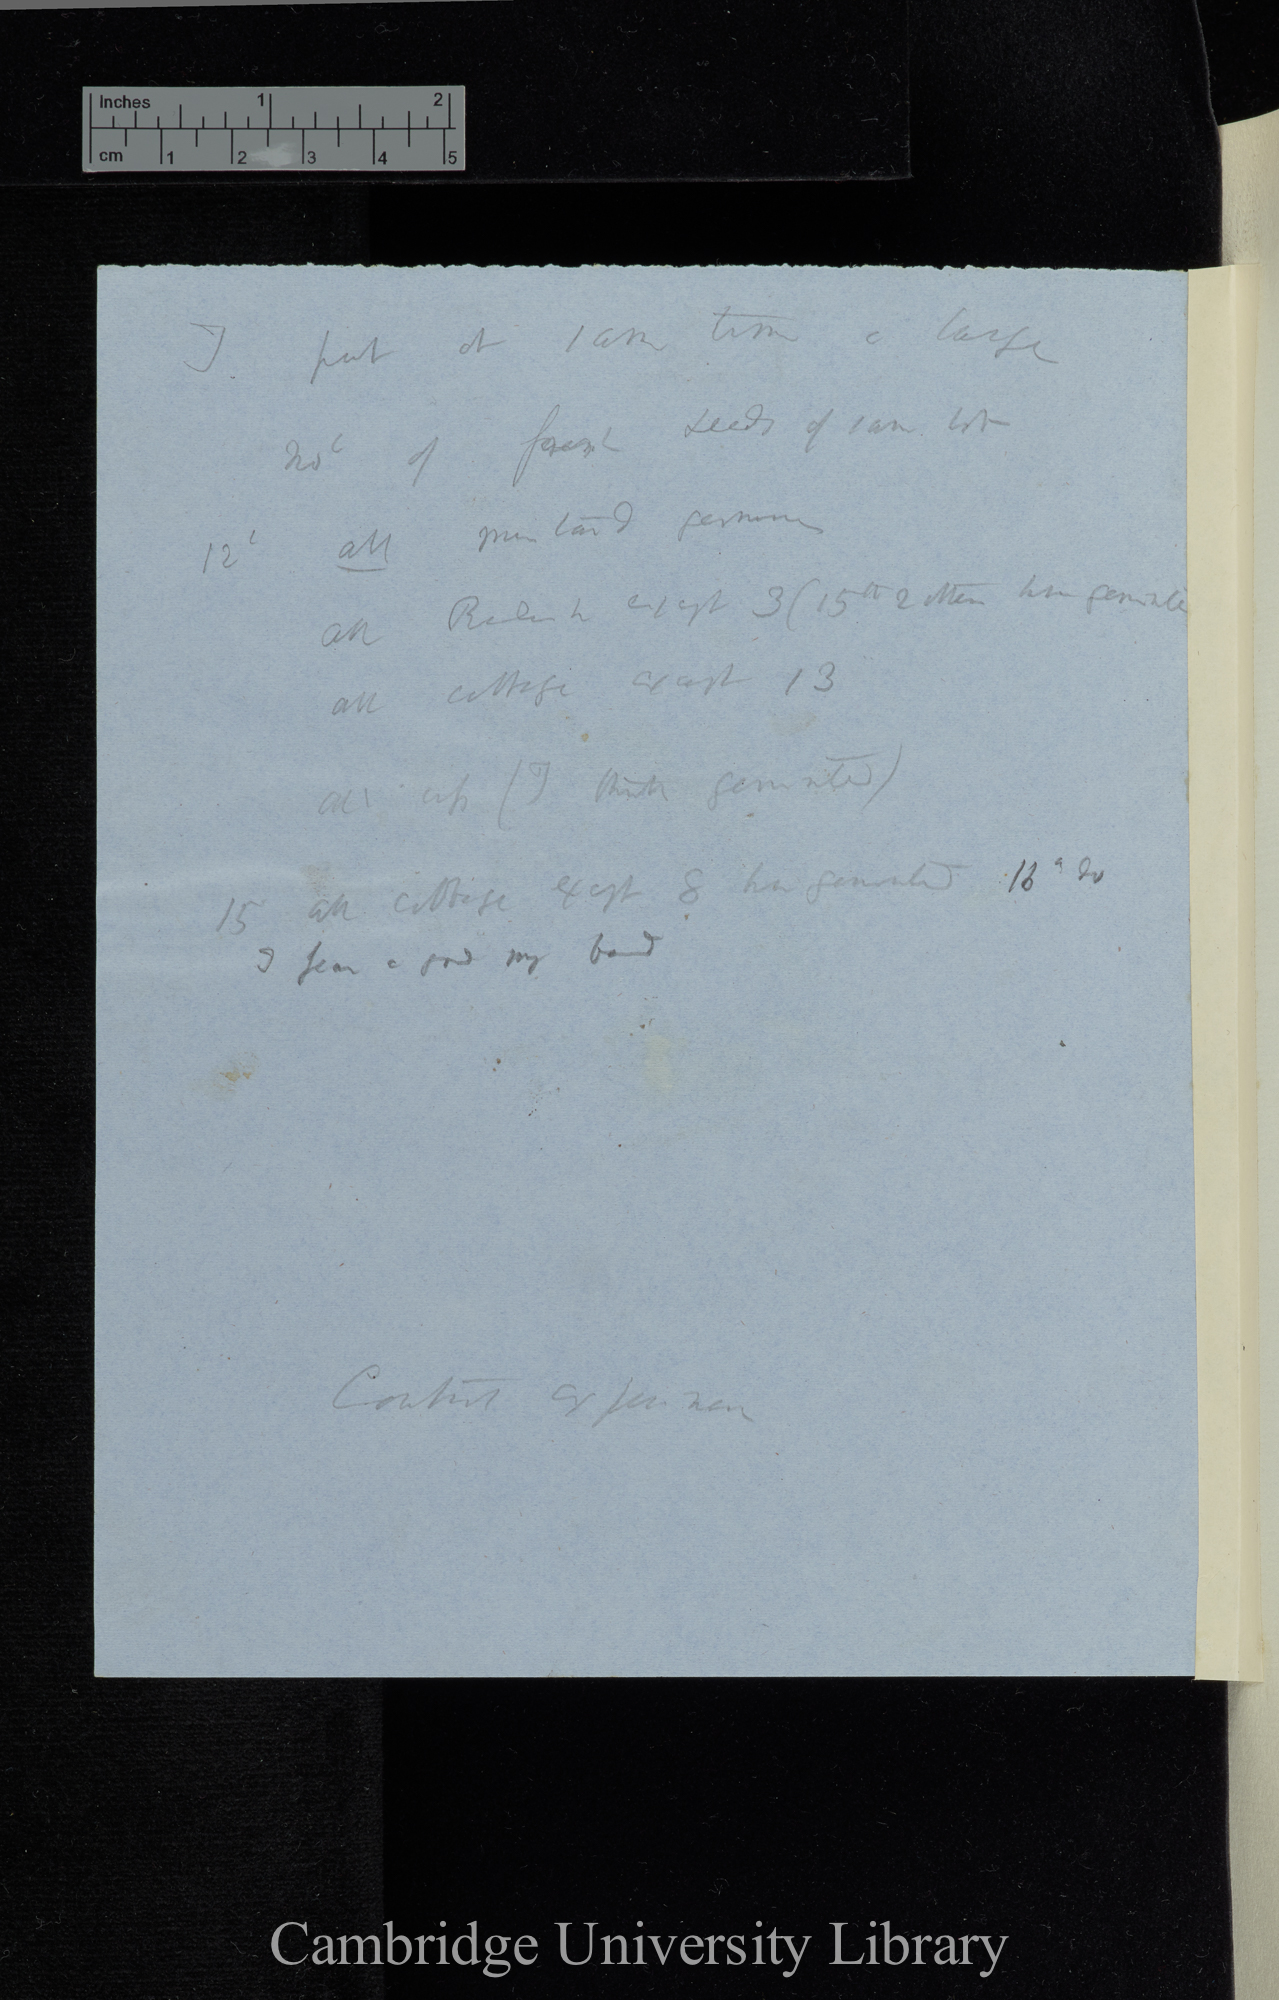 Inches 1 2
cm 1 2 3 4 5
I put at same time a large
No. of fresh seeds of same lot
12th all mustard germin
all Radish except 3 (15th 2 others have germinated
all cabbage except 13
all (I think germinated)
15 all cabbage except 8 have germinated 16th do
I fear a
experiment
Cambridge University Library